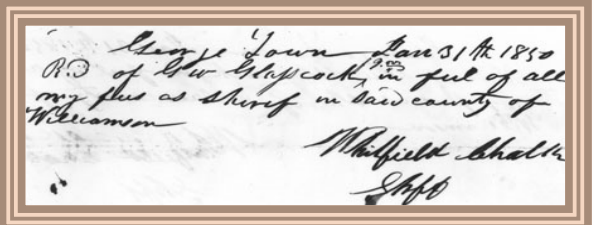 George Town Jan 31th 1850
RD of GW Glasscock, in ful of all
my fees as sheref in Said county of
Williamson
Whitfield Chalk
Shff